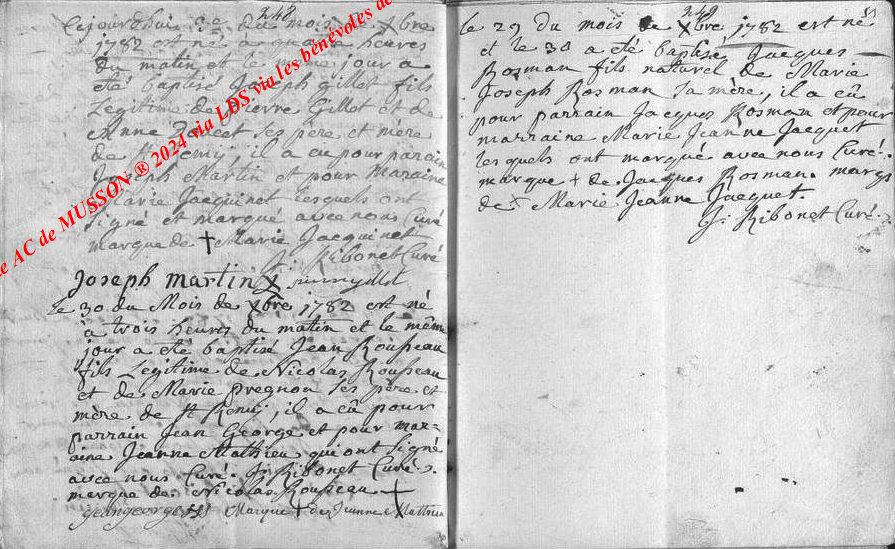 248
Cejourdhui 3e du mois de Xbre
1782 est né a quatre heures
du matin et le même jour a
été baptisé Joseph Gillot fils
Legitime de Pierre Gillot et de
Anne ses père et mère
de St Remij, il a eu pour parain
Joseph Martin et pour Maraine
Marie Jacquinet lesquels ont
signé et marqué avec nous Curé
marque de + Marie Jacquinet
J. Ribonet Curé
Joseph martin X
le 30 du Mois de Xbre 1782 est né
à trois heures du matin et le même
jour a été baptisé Jean Rousseau
fils Legitime de Nicolas Rousseau
et de Marie pregnon ses père et
mère de St Remij, il a eû pour
parrain Jean George et pour mar=
aine Jeanne Mathieu qui ont signé
avec nous Curé. J. Ribonet Curé.
marque de Nicolas Rousseau +
jeangeorge Marque + de Jeanne Mathieu
249
51
le 29 du mois de Xbre 1782 est né
et le 30 a été baptisé Jacques
Rosman fils naturel de Marie
Joseph Rosman sa mère, il a eû
pour parrain Jacques Rosman et pour
marraine Marie Jeanne Jacquet
lesquels ont marqué avec nous Curé.
marque + de Jacques Rosman. marque
de + Marie Jeanne Jacquet.
J. Ribonet Curé.
AC de MUSSON ® 2024 via LDS via les bénévoles de